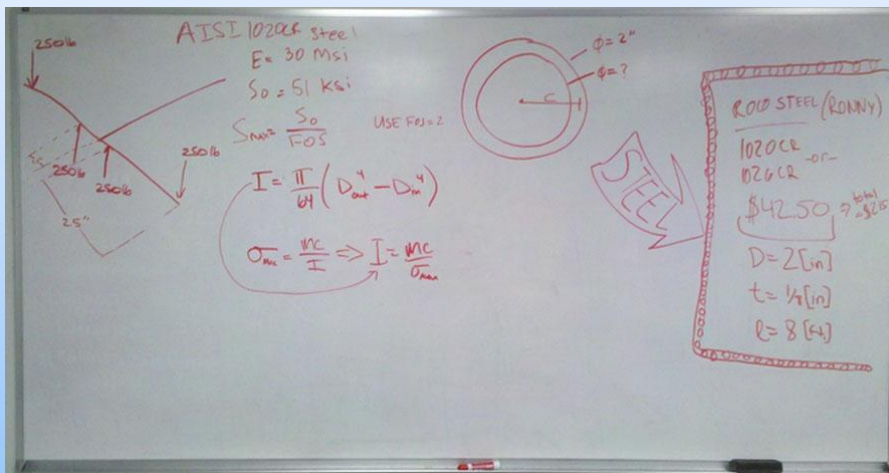 250lb
250lb
250lb
250lb
25"
AISI 1020CR Steel
E= 30 Msi
S₀ = 51 Ksi
Smax= S₀/FOS
USE FOS=2
I= π/64 (D⁴out - D⁴in)
σmax = mc/I => I= mc/σmax
Φ=2"
Φ=?
c
STEEL
(RONNY)
1020CR
-or-
1026CR
$42.50 => total
D=2[in]
t= 1/8[in]
l= 8 [ft.]